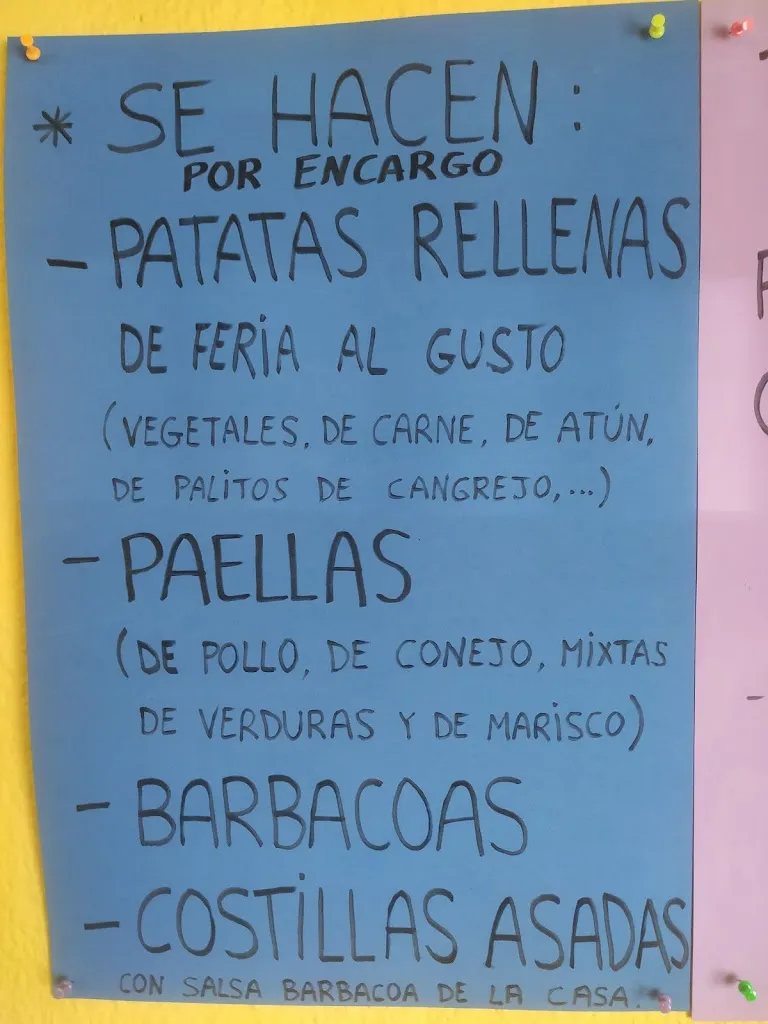 * SE HACEN:
POR ENCARGO
- PATATAS RELLENAS
DE FERIA AL GUSTO
(VEGETALES, DE CARNE, DE ATÚN,
DE PALITOS DE CANGREJO,...)
- PAELLAS
(DE POLLO, DE CONEJO, MIXTAS
DE VERDURAS Y DE MARISCO)
- BARBACOAS
- COSTILLAS ASADAS
CON SALSA BARBACOA DE LA CASA.